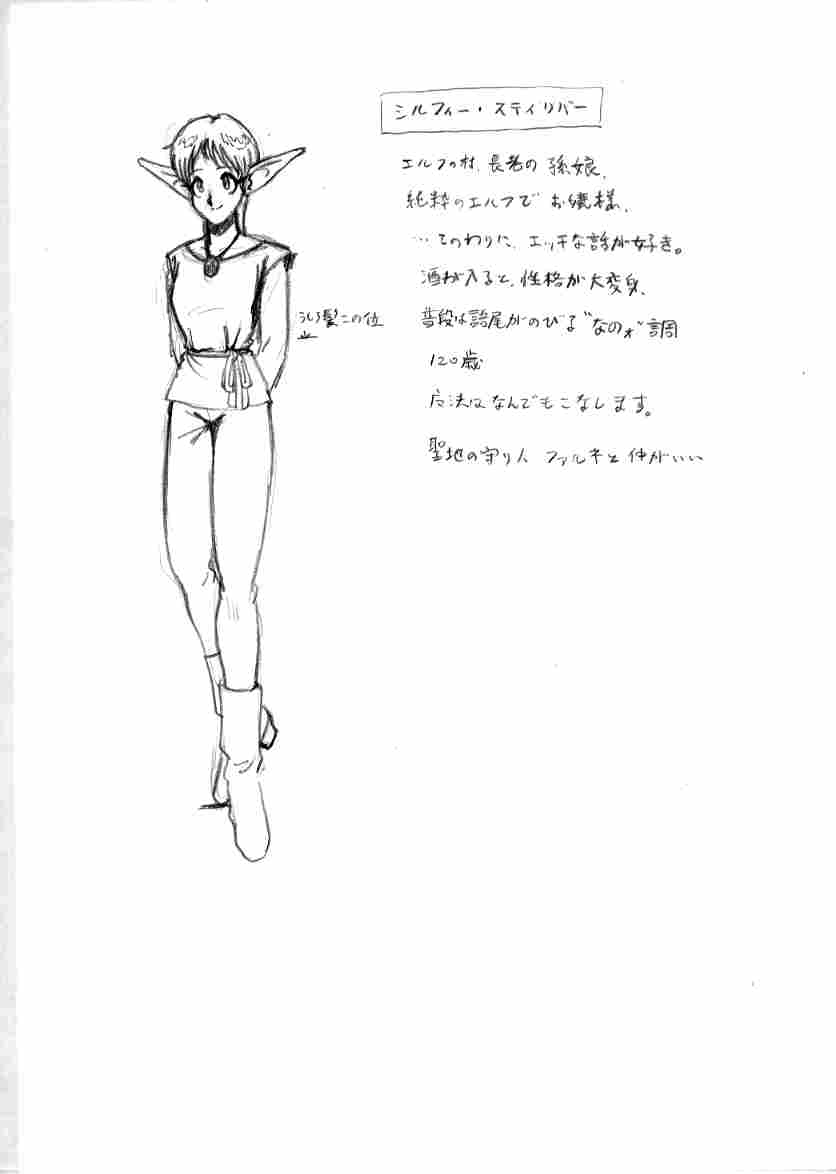 シルフィー・スティリバー
エルフの村、長老の孫娘、
純粋のエルフでお嬢様、
…そのわりに、エッチな話が好き。
酒が入ると、性格が大変身、
うしろ髪この位
普段は語尾がのびる"なのォ"調
120歳
魔法はなんでもこなします。
聖地の守り人 ファルネと仲がいい